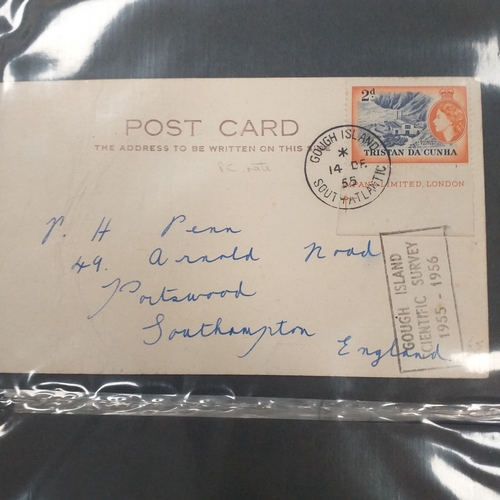 POST CARD
THE ADDRESS TO BE WRITTEN ON THIS
PC rate
2d
TRISTAN DA CUNHA
LIMITED, LONDON
GOUGH ISLAND
*
14 DE
55
SOUTH ATLANTIC
P. H Penn
49. Arnold Road
Portswood
Southampton
England
GOUGH ISLAND
SCIENTIFIC SURVEY
1955 - 1956